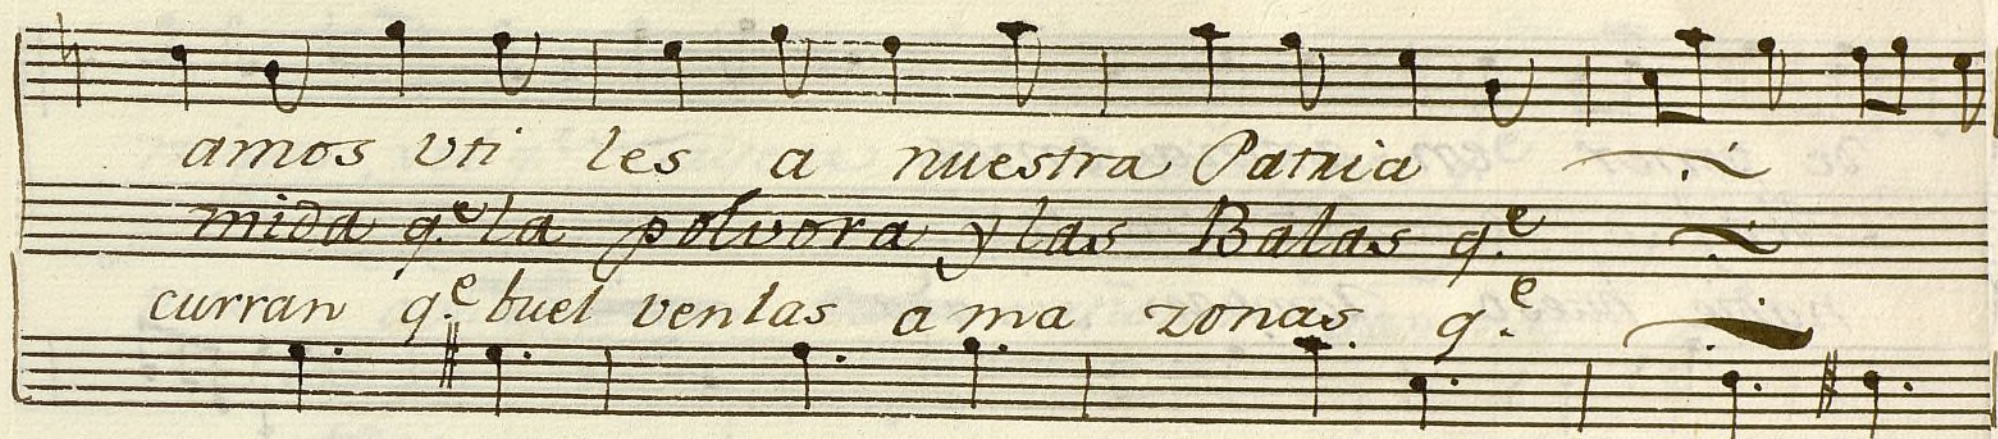 amos vti les a nuestra Patria
mida q.e la polvora y las Balas q.e
curran q.e buel ven las a ma zonas q.e